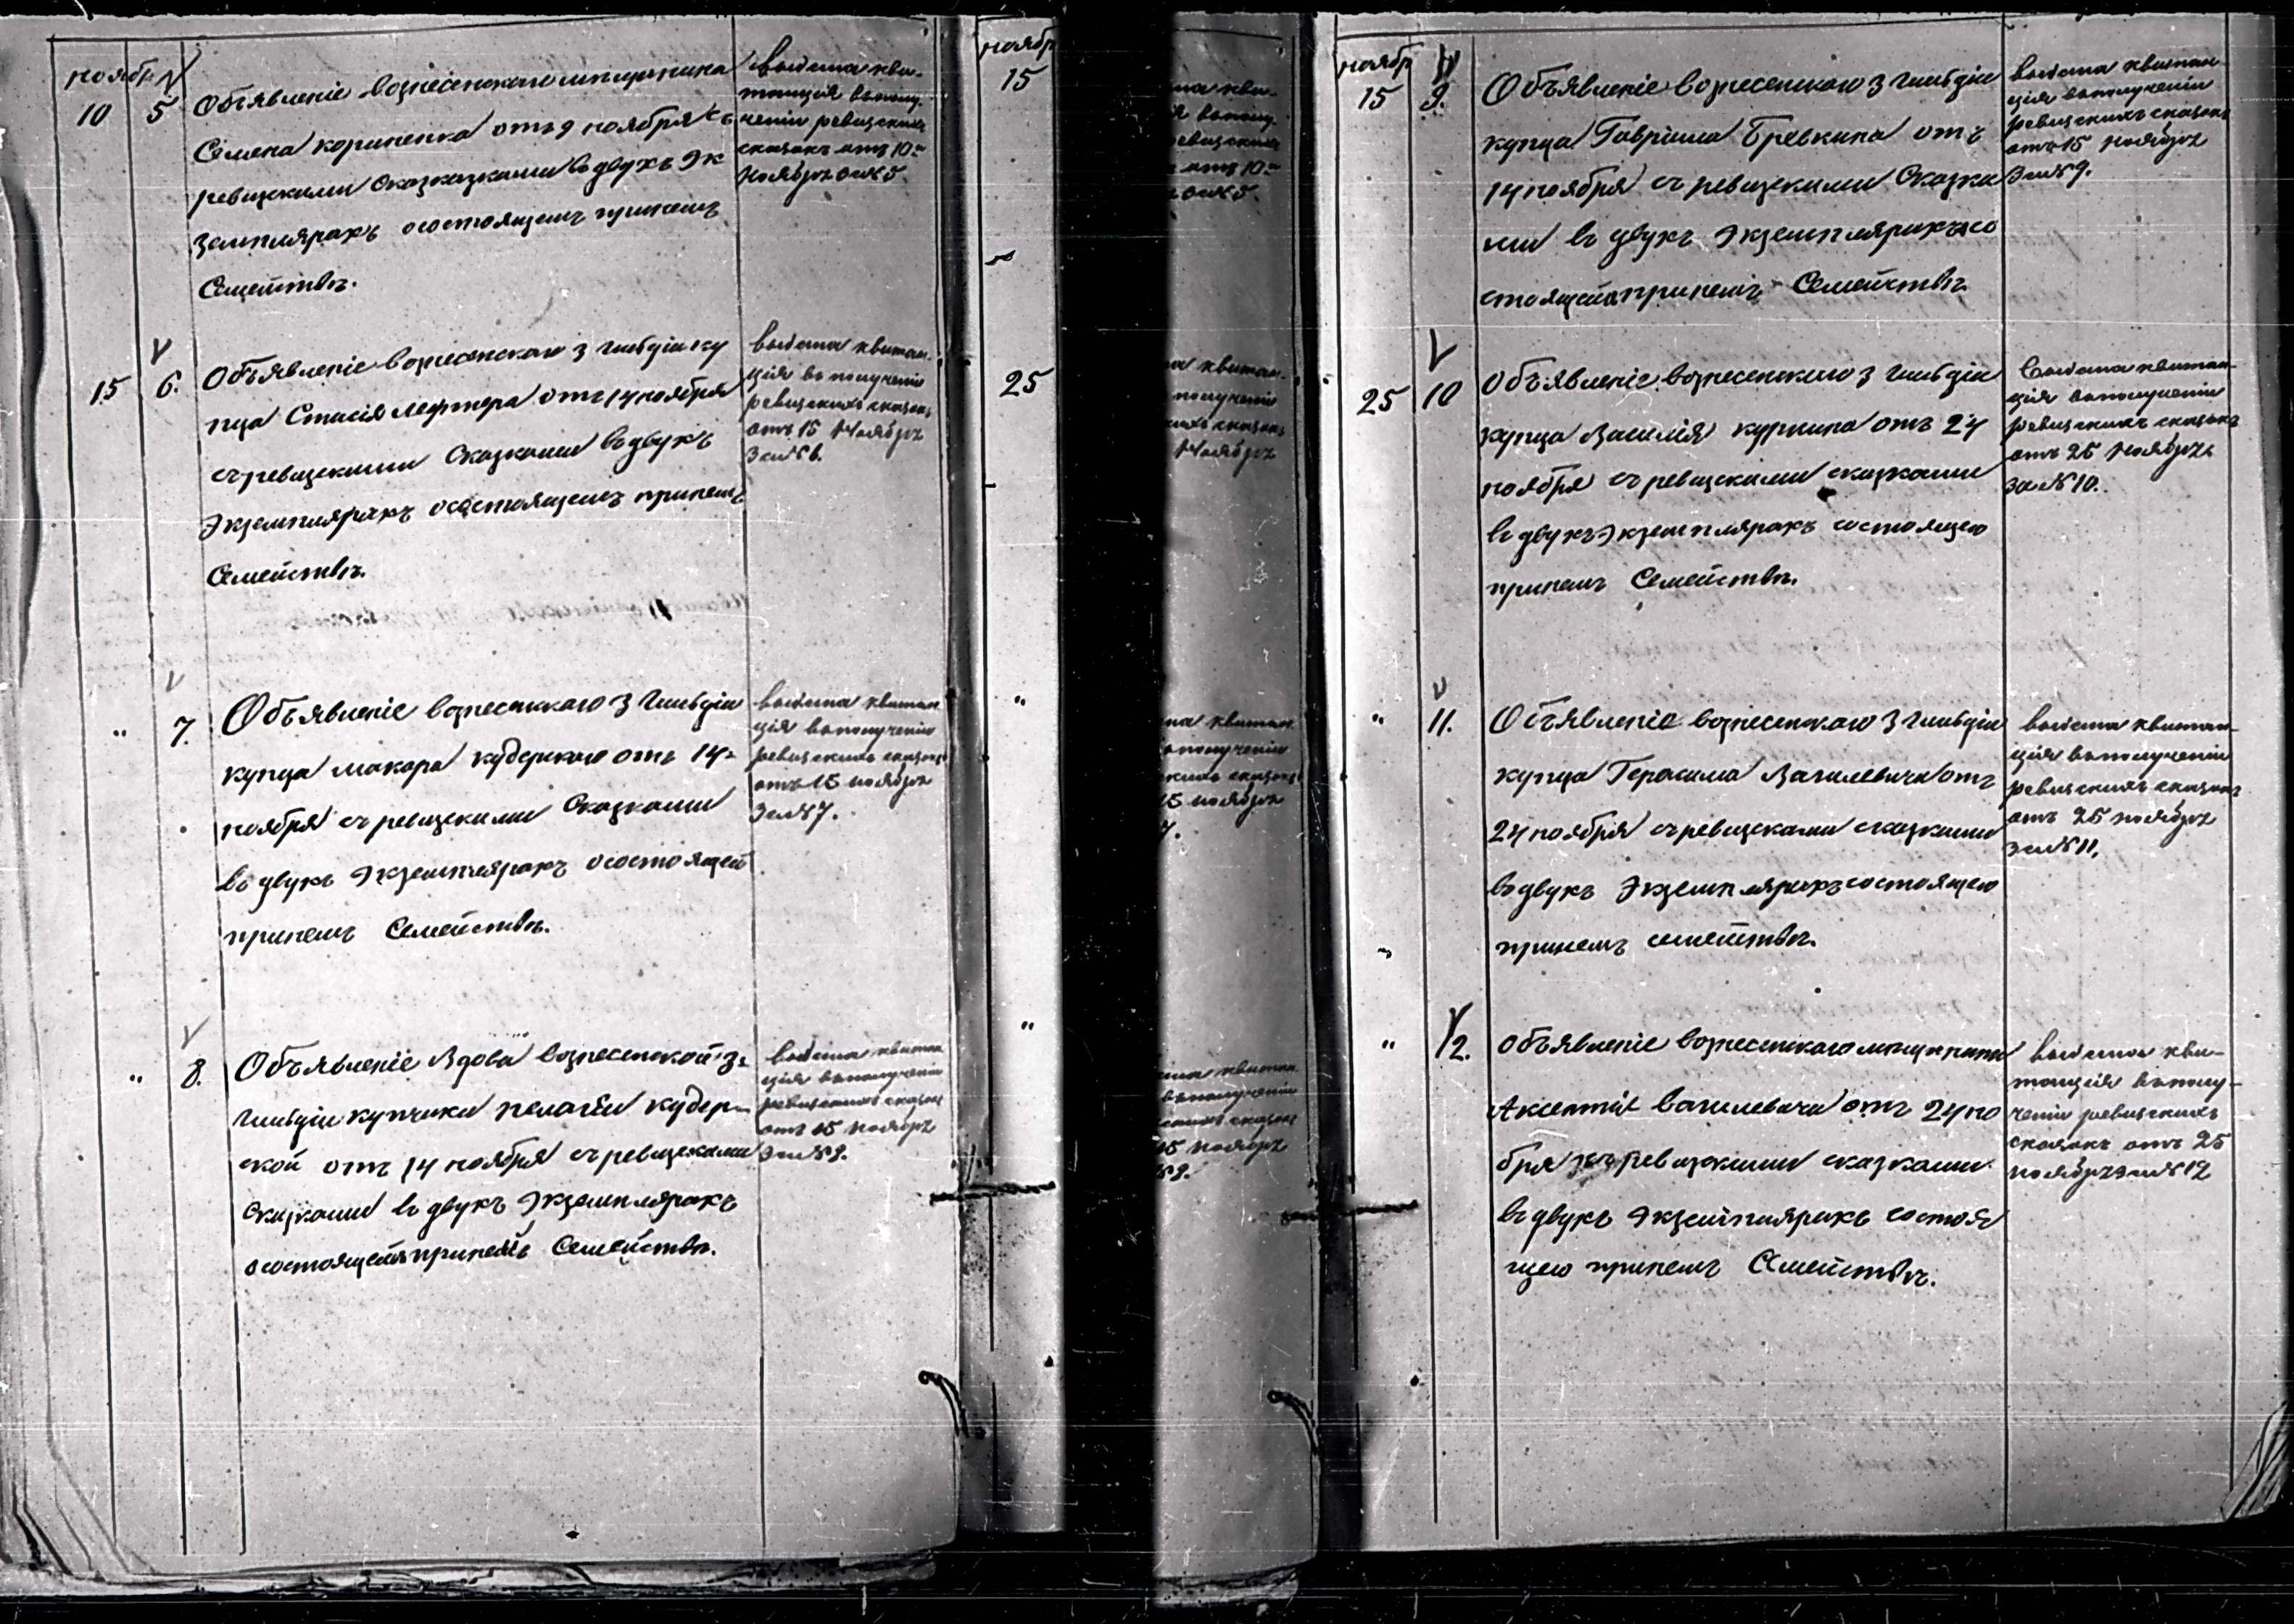 ноябр N
10 5 Объявленіе вознесенскаго мещанина
Семена корниенка отъ 9 ноября съ
ревизскими сказказками въ двухъ эк
земплярахъ осостоящемъ принемъ
Семействѣ.
выдана кви-
танція въ полу-
ченіи ревизскихъ
сказокъ отъ 10
ноября за № 5.
15 6. Объявленіе вознесенскаго 3 гильдіи ку
пца отъ 14 ноября
съ ревизскими Сказками въ двухъ
экземплярахъ осостоящемъ принемъ
Семействѣ.
выдана квитан-
ція въ полученіи
ревизскихъ сказокъ
отъ 15 Ноября
за № 6.
" 7. Объявленіе вознесенскаго 3 гильдіи
купца макара кудерскаго отъ 14
ноября съ ревизскими Сказками
въ двухъ экземплярахъ осостоящей
принемъ Семействѣ.
выдана квитан
ція въ полученіи
ревизскихъ сказокъ
отъ 15 ноября
за № 7.
" 8. Объявленіе Вдова вознесенской 3
гильдіи купчихи пелагеи кудер-
ской отъ 14 ноября съ ревизскими
Сказками въ двухъ экземплярахъ
осостоящей принемъ Семействѣ.
выдана квитан
ція въ полученіи
ревизскихъ сказокъ
отъ 15 ноября
за № 8.
ноябр
15
25
"
"
ноябр
15 9. Объявленіе вознесенскаго 3 гильдіи
купца Гавріила Бревкина отъ
14 ноября съ ревизскими Сказка
ми въ двухъ экземплярахъ осо
стоящей принемъ Семействѣ.
выдана квитан-
ція въ полученіи
ревизскихъ сказокъ
отъ 15 ноября
за № 9.
25 10 Объявленіе вознесенскаго 3 гильдіи
купца Василія отъ 24
ноября съ ревизскими сказками
въ двухъ экземплярахъ состоящею
принемъ Семействѣ.
выдана квитан-
ція въ полученіи
ревизскихъ сказокъ
отъ 25 ноября
за № 10.
" 11. Объявленіе вознесенскаго 3 гильдіи
купца Герасима Василевича отъ
24 ноября съ ревизскими сказками
въ двухъ экземплярахъ состоящею
принемъ семействѣ.
выдана квитан-
ція въ полученіи
ревизскихъ сказокъ
отъ 25 ноября
за № 11.
" 12. Объявленіе вознесенскаго мещанина
Аксентія василевича отъ 24 но
бря съ ревизскими сказками
въ двухъ экземплярахъ состоя
щею принемъ Семействѣ.
выдана кви-
танція въ полу-
ченіи ревизскихъ
сказокъ отъ 25
ноября за № 12